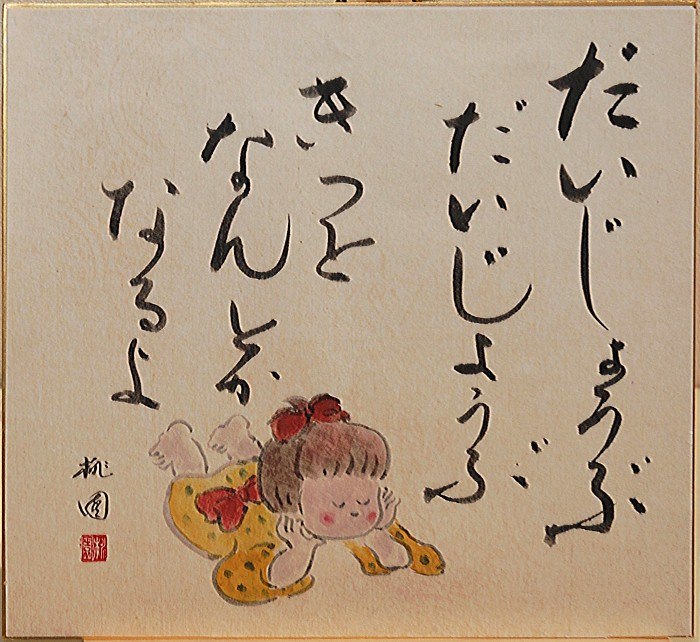 だいじょうぶ
だいじょうぶ
きっと
なんとか
なるよ
桃園